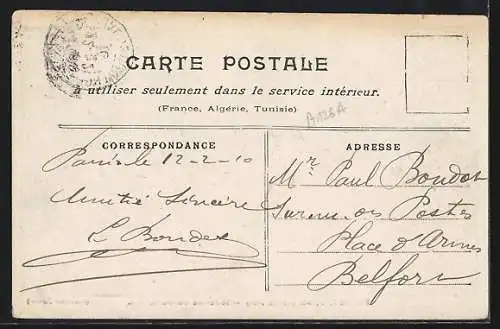 CARTE POSTALE
à utiliser seulement dans le service intérieur.
(France, Algérie, Tunisie)
A126A
CORRESPONDANCE
Paris le 12-2-10
Amitié Sincère
ADRESSE
Mr Paul Boudot
Surnum. des Postes
Place d'Armes
Belfort